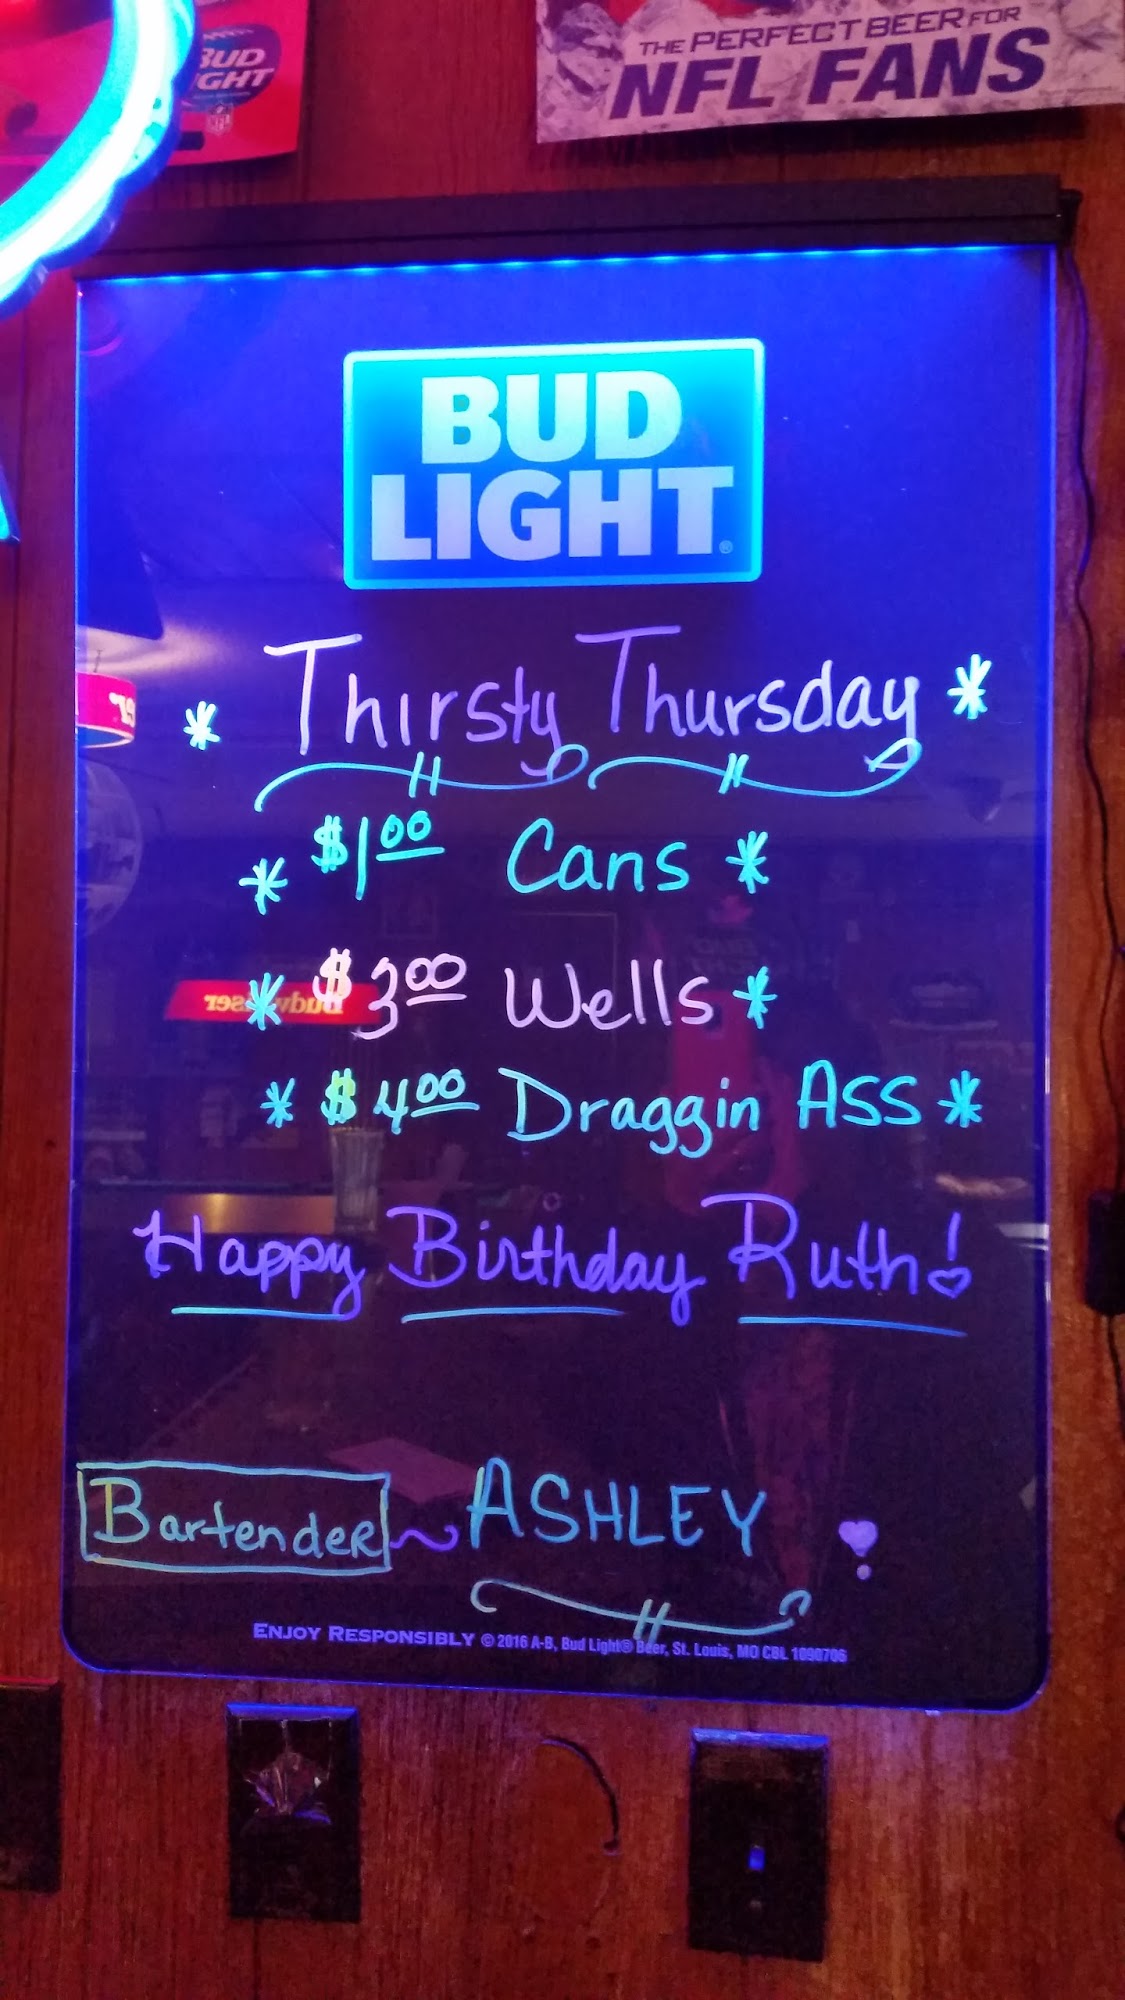 BUD
LIGHT
NFL
THE PERFECT BEER FOR
NFL FANS
BUD
LIGHT®
* Thirsty Thursday *
* $1.00 Cans *
* $3.00 Wells *
* $4.00 Draggin Ass *
Happy Birthday Ruth!
Bartender ~ ASHLEY
ENJOY RESPONSIBLY © 2016 A-B, Bud Light® Beer, St. Louis, MO CBL 1090706
Budweiser